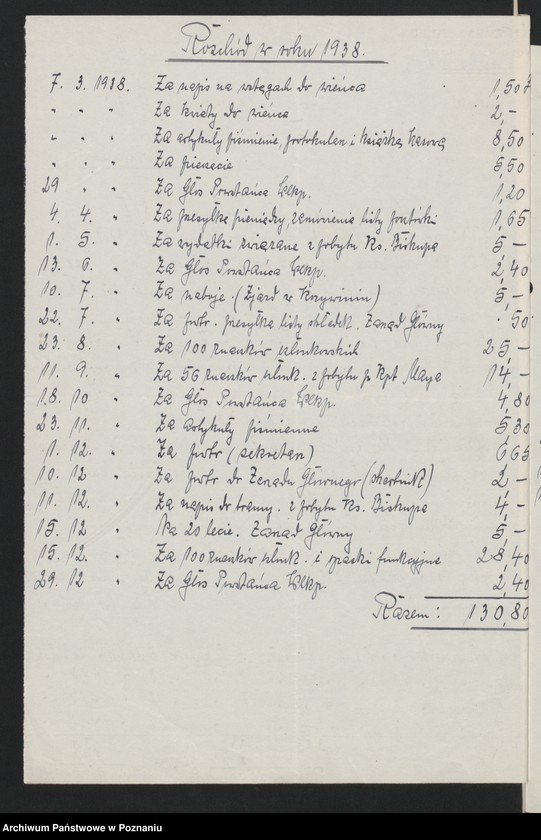 Rozchód w roku 1938.
7. 3. 1938. Za napis na wstęgach do wieńca 1,50
" " " Za kwiaty do wieńca 2,-
" " " Za artykuły piśmienne, protokularz i książkę kasową 8,50
" " " Za pieczęcie 5,50
29 " " Za Głos Powstańca Wlkp. 1,20
4. 4. " Za przesyłkę pieniędzy, zamówienia listy pocztówki 1,65
1. 5. " Za wydatki związane z pobytu Ks. Biskupa 5,-
13. 6. " Za Głos Powstańca Wlkp. 2,40
10. 7. " Za naboje (Zjazd w Krzywiniu) 5,-
22. 7. " Za portor. przesyłka listy składek. Zarząd Główny 50
23. 8. " Za 100 znaczków członkowskich 25,-
11. 9. " Za 56 znaczków członk. z pobytu p. Kpt. Maya 14,-
18. 10 " Za Głos Powstańca Wlkp. 4,80
23. 11. " Za artykuły piśmienne 5 30
1. 12. " Za portor (sekretarz) 6 65
10. 12 " Za portor do Zarządu Głównego (skarbnik) 2 -
11. 12. " Za napis do trumy. z pobytu Ks. Biskupa 4,-
15. 12 " Na 20 lecie. Zarząd Główny 5,-
15. 12. " Za 100 znaczków członk. i opaski funkcyjne 28,40
29. 12 " Za Głos Powstańca Wlkp. 2,40
Razem: 130,80
Archiwum Państwowe w Poznaniu